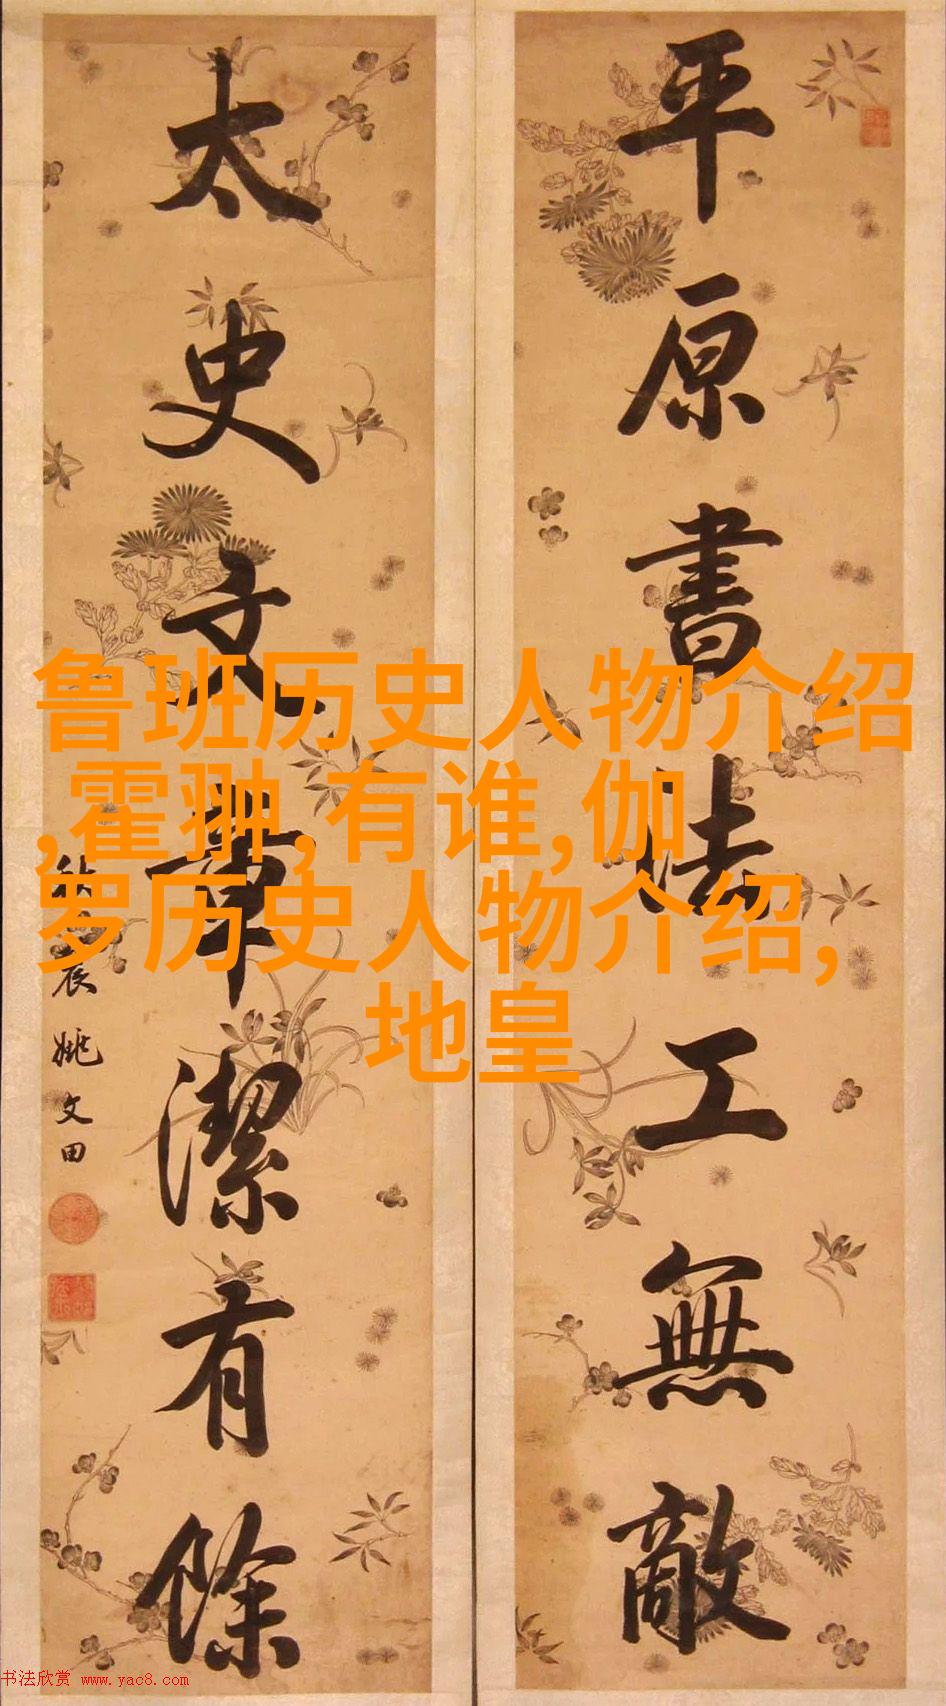 平原書法工無敵
太史文章潔有餘
姚文田
鲁班历史人物介绍
,霍翀,有谁,伽
罗历史人物介绍,
地皇
书法欣赏 www.yac8.com